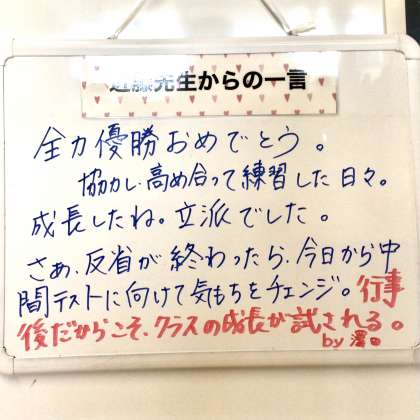 近藤先生からの一言
全力優勝おめでとう。
協力し、高め合って練習した日々。
成長したね。立派でした。
さぁ、反省が終わったら、今日から中
間テストに向けて気もちをチェンジ。行事
後だからこそ、クラスの成長が試される。
by 澤口